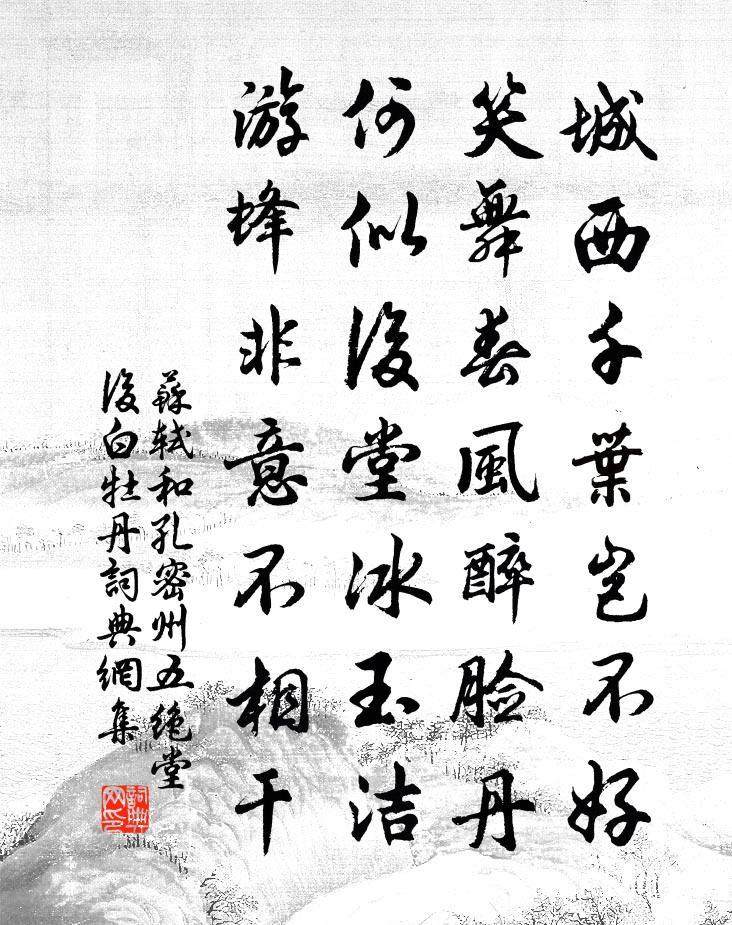 城西千葉岂不好
笑舞春風醉脸丹
何似後堂冰玉洁
游蜂非意不相干
蘇轼和孔密州五絶堂
後白牡丹詞典網集